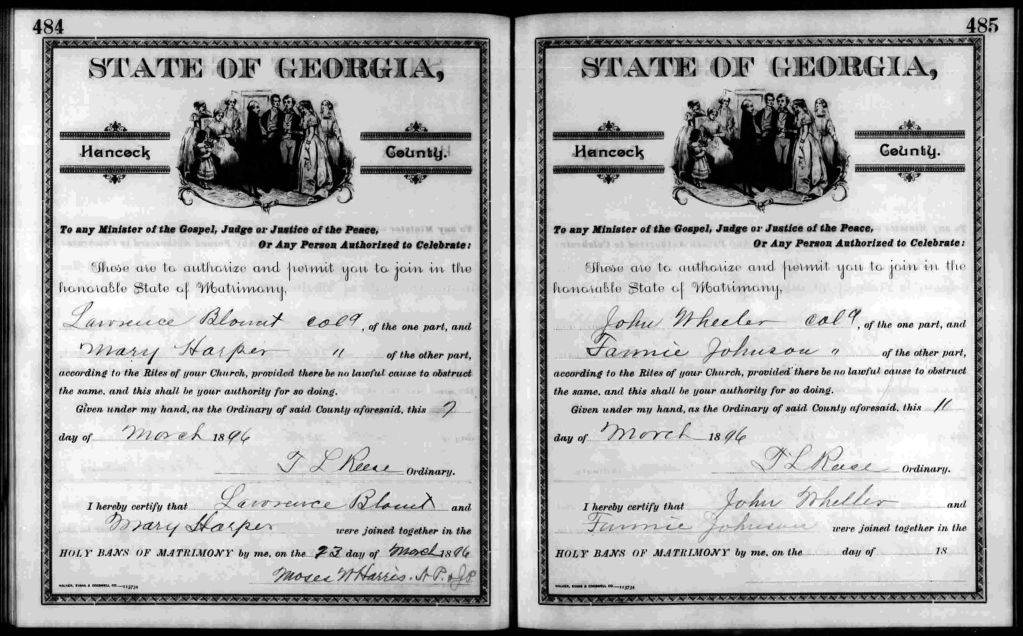 484
STATE OF GEORGIA,
Hancock County.
To any Minister of the Gospel, Judge or Justice of the Peace,
Or Any Person Authorized to Celebrate:
These are to authorize and permit you to join in the
honorable State of Matrimony,
Lawrence Blount cold, of the one part, and
Mary Harper " of the other part,
according to the Rites of your Church, provided there be no lawful cause to obstruct
the same, and this shall be your authority for so doing.
Given under my hand, as the Ordinary of said County aforesaid, this 7
day of March 1896
T L Reese Ordinary.
I hereby certify that Lawrence Blount and
Mary Harper were joined together in the
HOLY BANS OF MATRIMONY by me, on the day of March 1896
Moses W Harris. N.P. & J.P.
WALKER, EVANS & COGSWELL CO.
485
STATE OF GEORGIA,
Hancock County.
To any Minister of the Gospel, Judge or Justice of the Peace,
Or Any Person Authorized to Celebrate:
These are to authorize and permit you to join in the
honorable State of Matrimony,
John Wheeler cold, of the one part, and
Fannie Johnson " of the other part,
according to the Rites of your Church, provided there be no lawful cause to obstruct
the same, and this shall be your authority for so doing.
Given under my hand, as the Ordinary of said County aforesaid, this 11
day of March 1896
T L Reese Ordinary.
I hereby certify that John Wheller and
Fannie Johnson were joined together in the
HOLY BANS OF MATRIMONY by me, on the day of 18
WALKER, EVANS & COGSWELL CO.